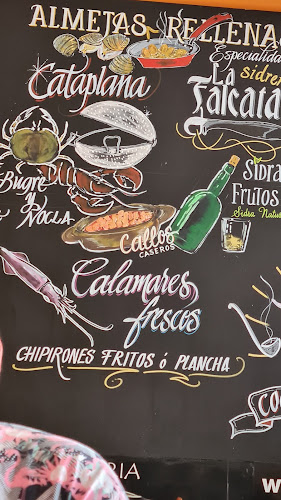 ALMEJAS RELLENAS
Especialidad
sidrería
La
Falcata
Cataplana
Bugre
y Nocla
Sidra
Frutos
Sidra Natural
Callos
CASEROS
Calamares
frescos
CHIPIRONES FRITOS ó PLANCHA
CO
RIA
W